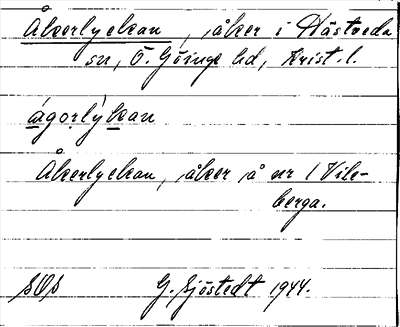 Åkerlyckan, åker i Hästveda
sn, Ö. Göinge hd, Krist. l.
ágorlýkan
Åkerlyckan, åker å nr 1 Vile-
berga.
SOS G. Sjöstedt 1944.